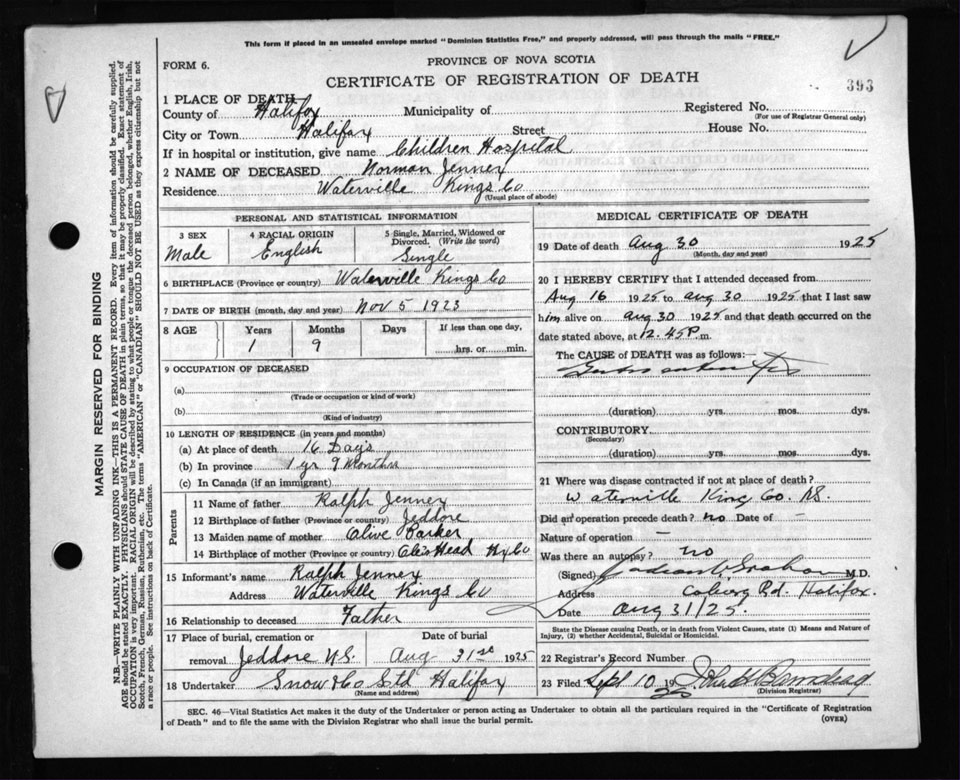 This form if placed in an unsealed envelope marked "Dominion Statistics Free," and properly addressed, will pass through the mails "FREE."
FORM 6.
PROVINCE OF NOVA SCOTIA
CERTIFICATE OF REGISTRATION OF DEATH
393
1 PLACE OF DEATH
County of Halifax Municipality of Registered No.
(For use of Registrar General only)
City or Town Halifax Street House No.
If in hospital or institution, give name Children Hospital
2 NAME OF DECEASED Norman Jennex
Residence Waterville Kings Co
(Usual place of abode)
PERSONAL AND STATISTICAL INFORMATION
3 SEX Male
4 RACIAL ORIGIN English
5 Single, Married, Widowed or Divorced. (Write the word) Single
6 BIRTHPLACE (Province or country) Waterville Kings Co
7 DATE OF BIRTH (month, day and year) Nov 5 1923
8 AGE Years Months Days If less than one day,
1 9 hrs. or min.
9 OCCUPATION OF DECEASED
(a)
(Trade or occupation or kind of work)
(b)
(Kind of industry)
10 LENGTH OF RESIDENCE (in years and months)
(a) At place of death 16 Days
(b) In province 1 yr 9 Months
(c) In Canada (if an immigrant)
Parents
11 Name of father Ralph Jennex
12 Birthplace of father (Province or country) Jeddore
13 Maiden name of mother Olive Parker
14 Birthplace of mother (Province or country) Head Hx Co
15 Informant's name Ralph Jennex
Address Waterville Kings Co
16 Relationship to deceased Father
17 Place of burial, cremation or Date of burial
removal Jeddore N.S. Aug 31st 1925
18 Undertaker Snow & Co Ltd Halifax
(Name and address)
MEDICAL CERTIFICATE OF DEATH
19 Date of death Aug 30 1925
(Month, day and year)
20 I HEREBY CERTIFY that I attended deceased from
Aug 16 1925 to Aug 30 1925 that I last saw
him alive on Aug 30 1925 and that death occurred on
date stated above, at 12.45 P.m.
The CAUSE of DEATH was as follows:—
(duration) yrs. mos. dys.
CONTRIBUTORY
(Secondary)
(duration) yrs. mos. dys.
21 Where was disease contracted if not at place of death?
Waterville King Co. NS.
Did an operation precede death? no Date of –
Nature of operation –
Was there an autopsy? no
(Signed) Graham M.D.
Address Coburg Rd. Halifax.
Date Aug 31/25.
State the Disease causing Death, or in death from Violent Causes, state (1) Means and Nature of Injury, (2) whether Accidental, Suicidal or Homicidal.
22 Registrar's Record Number
23 Filed Sept 10 19
(Division Registrar)
SEC. 46—Vital Statistics Act makes it the duty of the Undertaker or person acting as Undertaker to obtain all the particulars required in the "Certificate of Registration
of Death" and to file the same with the Division Registrar who shall issue the burial permit.
(OVER)
MARGIN RESERVED FOR BINDING
N.B.—WRITE PLAINLY WITH UNFADING INK—THIS IS A PERMANENT RECORD. Every item of information should be carefully supplied.
AGE should be stated EXACTLY. PHYSICIANS should STATE CAUSE OF DEATH in plain terms, so that it may be properly classified. Exact statement of
OCCUPATION is very important. RACIAL ORIGIN will be described by stating to what people or tongue the deceased person belonged, whether English, Irish,
Scotch, French, German, Russian, Ruthenian, etc. The terms "AMERICAN" or "CANADIAN" SHOULD NOT BE USED as they express citizenship but not
a race or people. See instructions on back of Certificate.